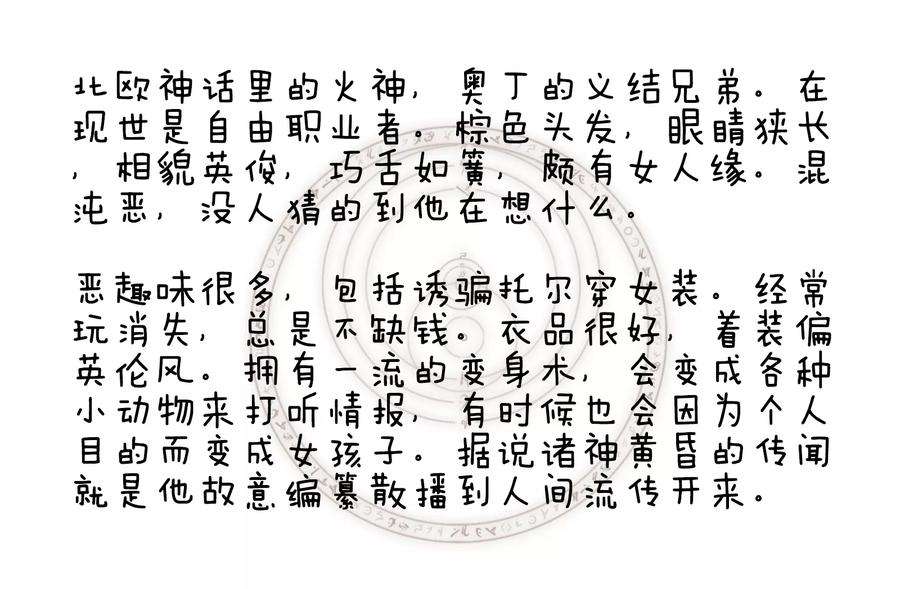 北欧神话里的火神，奥丁的义结兄弟。在
现世是自由职业者。棕色头发，眼睛狭长
，相貌英俊，巧舌如簧，颇有女人缘。混
沌恶，没人猜的到他在想什么。
恶趣味很多，包括诱骗托尔穿女装。经常
玩消失，总是不缺钱。衣品很好，着装偏
英伦风。拥有一流的变身术，会变成各种
小动物来打听情报，有时候也会因为个人
目的而变成女孩子。据说诸神黄昏的传闻
就是他故意编纂散播到人间流传开来。